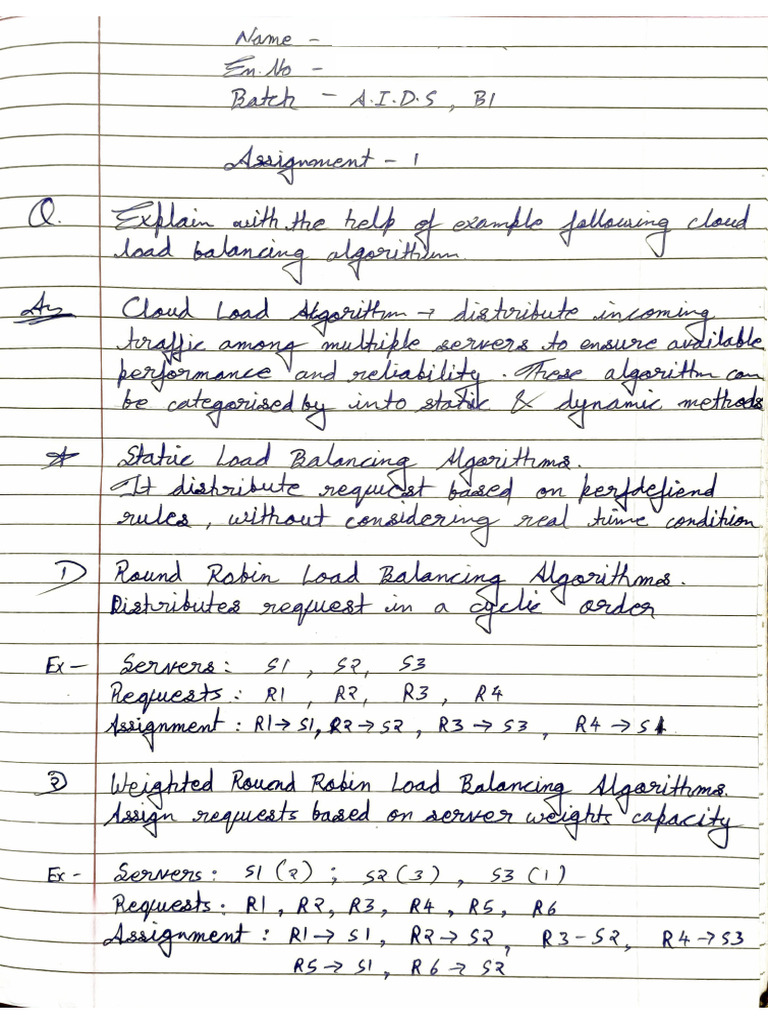 Name -
En.No -
Batch - A.I.D.S, B1
Assignment - 1
Q. Explain with the help of example following cloud
load balancing algorithm.
Ans Cloud Load Algorithm → distribute incoming
traffic among multiple servers to ensure available
performance and reliability. These algorithm can
be categorised by into static & dynamic methods
* Static Load Balancing Algorithms.
It distribute request based on perfdefiend
rules, without considering real time condition
1) Round Robin Load Balancing Algorithms.
Distributes request in a cyclic order
Ex - Servers: S1, S2, S3
Requests: R1, R2, R3, R4
Assignment: R1→S1, R2→S2, R3→S3, R4→S1
2) Weighted Round Robin Load Balancing Algorithms.
Assign requests based on server weights capacity
Ex - Servers: S1(2); S2(3), S3(1)
Requests: R1, R2, R3, R4, R5, R6
Assignment: R1→S1, R2→S2, R3-S2, R4→S3
R5→S1, R6→S2